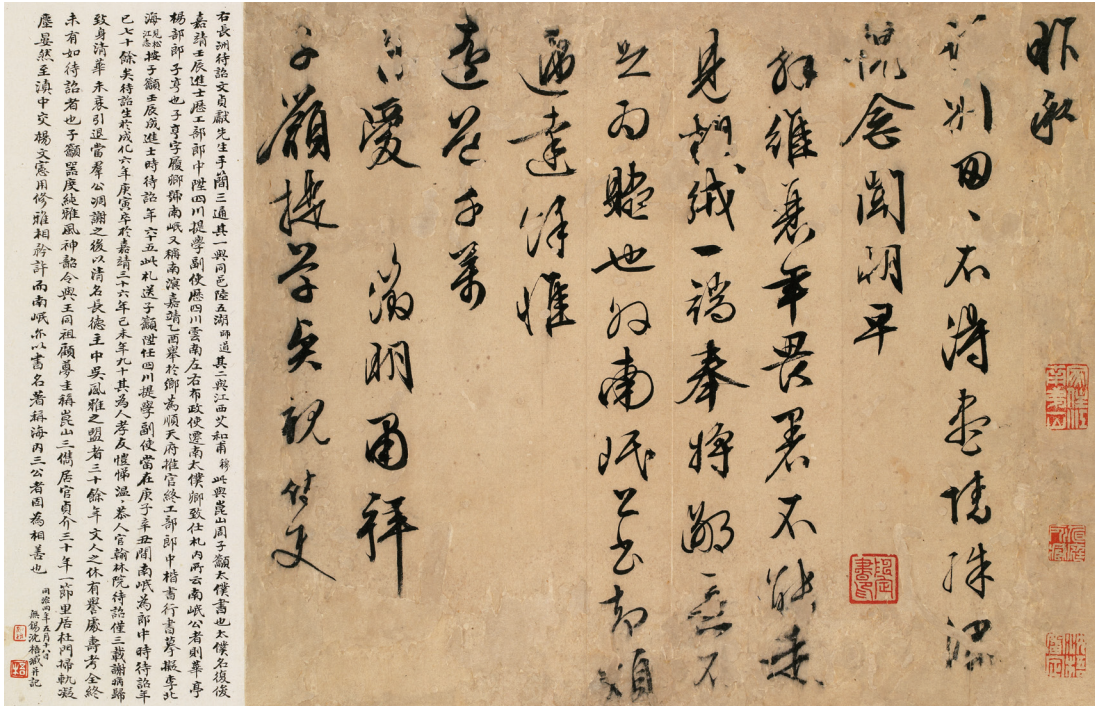 昨承
訪別匆々不得盡情殊深
愧念聞明早
解維衰年畏暑不能走
見輕絨一端奉將鄙意不
足為贐也外南岷公書却煩
便達餘惟
遠道千萬
自愛 徵明再拜
子籲提學 侍史
右長洲待詔文貞獻先生手簡三通其一與同邑陸五湖師道其二與江西艾和甫穆此與崑山周子籲太僕書也太僕名復俊
嘉靖壬辰進士歷工部郎中陞四川提學副使歷四川雲南左右布政使遷南太僕卿致仕札內所云南岷公者則華亭
楊部郎子亨也子亨字履卿號南岷又稱南溟嘉靖乙酉舉於鄉為順天府推官終工部郎中楷書行書摹擬李北
海見松江志按子籲壬辰成進士時待詔年六十五此札送子籲陞任四川提學副使當在庚子辛丑間南岷為郎中時待詔年
已七十餘矣待詔生於成化六年庚寅卒於嘉靖三十六年己未年九十其為人孝友愷悌溫々恭人官翰林院待詔僅三載謝病歸
致身清華未衰引退當羣公凋謝之後以清名長德主中吳風雅之盟者三十餘年文人之休有譽處壽考全終
未有如待詔者也子籲器度純雅風神韶令與王同祖顧夢圭稱崑山三儁居官貞介三十年一節里居杜門掃軌凝
塵晏然至滇中交楊文憲用修雅相矜許而南岷亦以書名著稱海內三公者固為相善也
同治四年五月十八日
無錫沈梧識并記